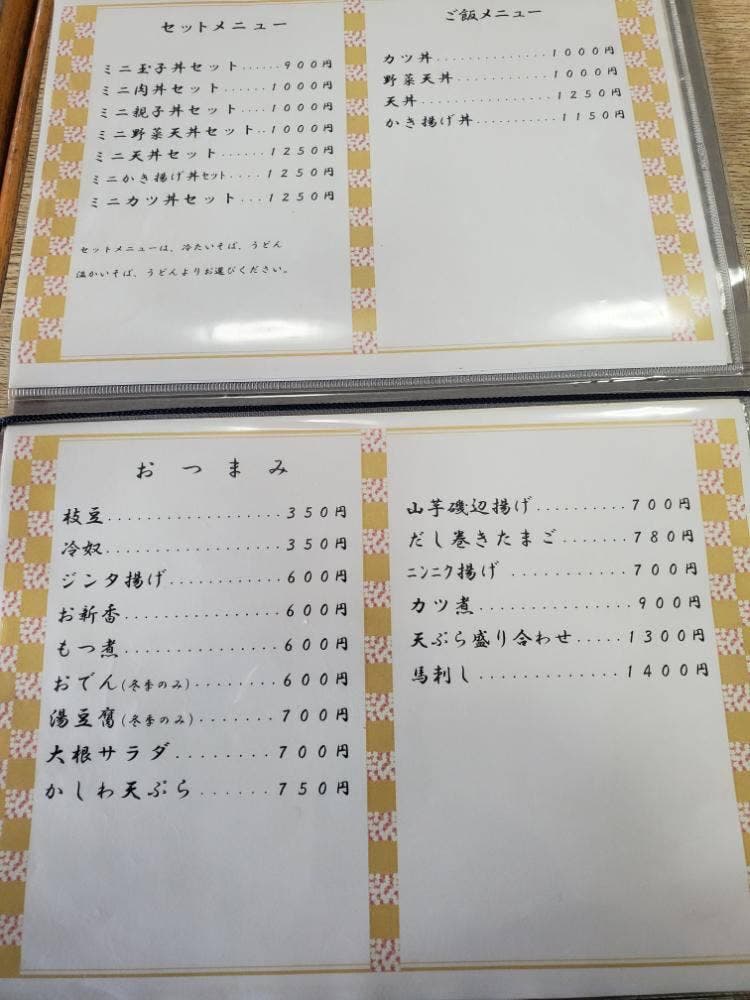 セットメニュー
ミニ玉子丼セット.....900円
ミニ肉丼セット.....1000円
ミニ親子丼セット....1000円
ミニ野菜天丼セット..1000円
ミニ天丼セット......1250円
ミニかき揚げ丼セット...1250円
ミニカツ丼セット...1250円
セットメニューは、冷たいそば、うどん
温かいそば、うどんよりお選びください。
ご飯メニュー
カツ丼..............1000円
野菜天丼............1000円
天丼................1250円
かき揚げ丼..........1150円
おつまみ
枝豆................350円
冷奴................350円
ジンタ揚げ..........600円
お新香..............600円
もつ煮..............600円
おでん(冬季のみ)........600円
湯豆腐(冬季のみ).......700円
大根サラダ.........700円
かしわ天ぷら.......750円
山芋磯辺揚げ..........700円
だし巻きたまご.......780円
ニンニク揚げ...........700円
カツ煮..............900円
天ぷら盛り合わせ.....1300円
馬刺し.............1400円